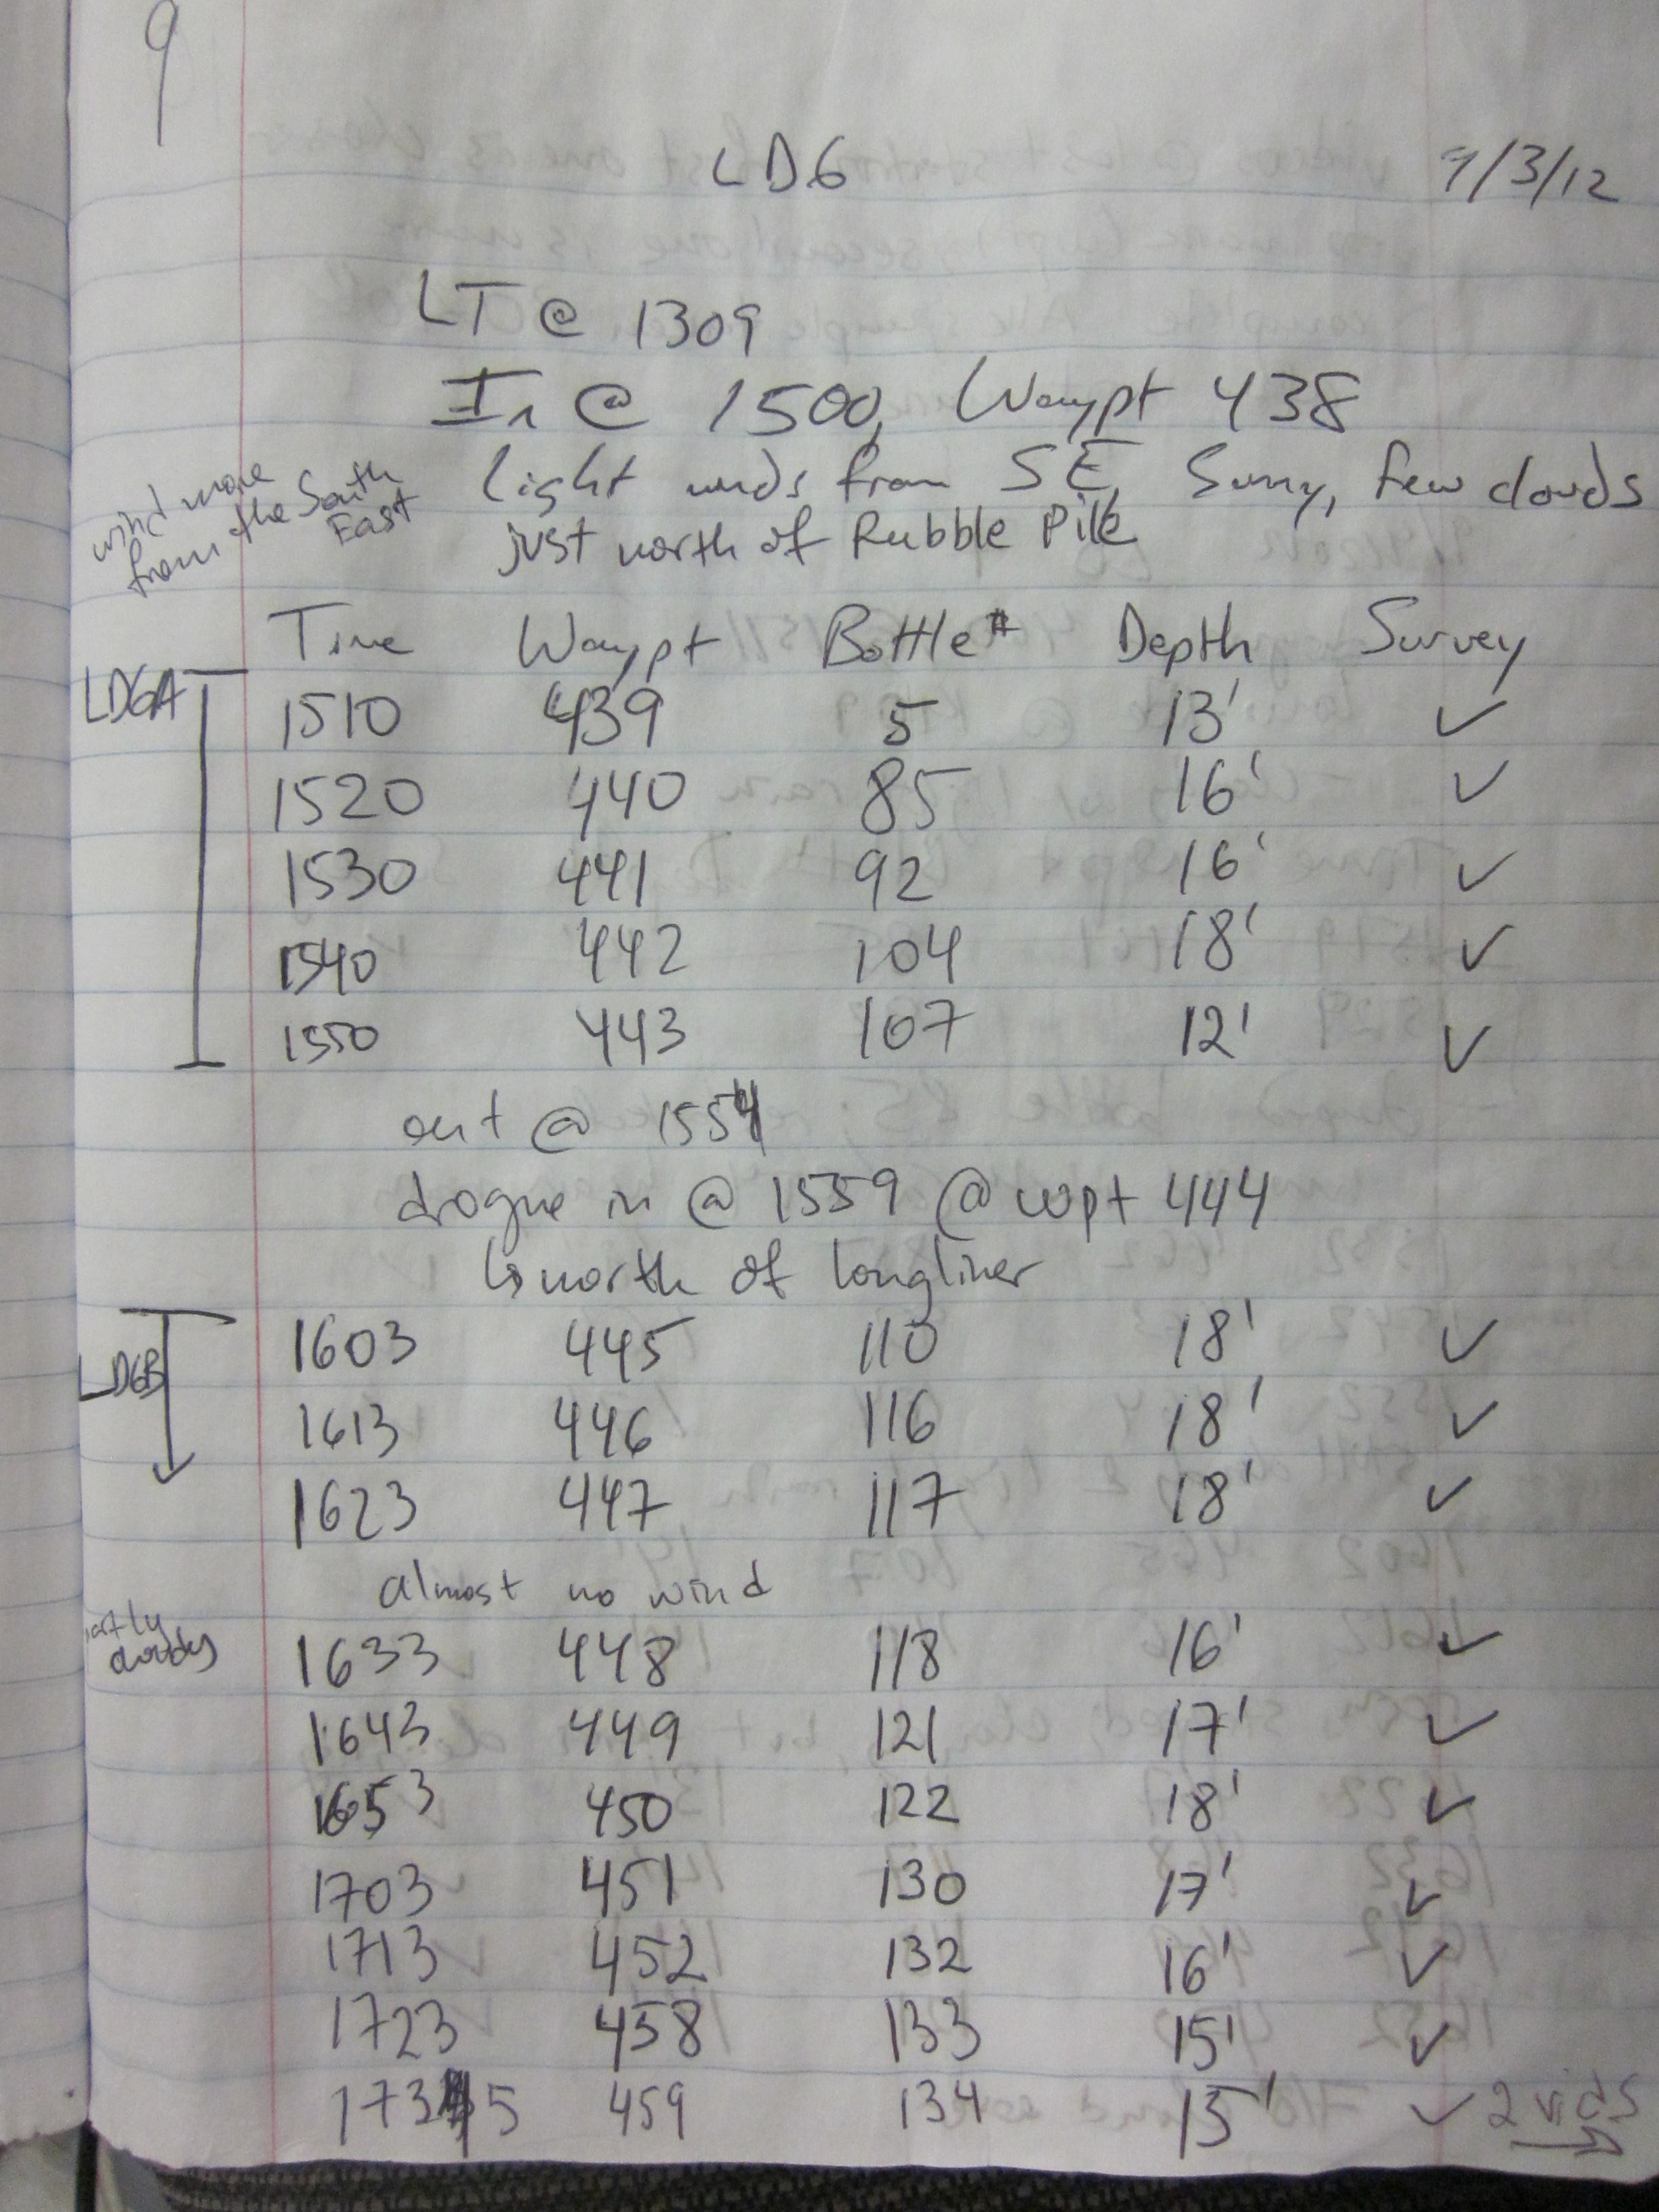 9
LD6 9/3/12
LT @ 1309
In @ 1500, Waypt 438
light winds from SE, Sunny, few clouds
just north of Rubble Pile
wind more
from the South
East
Time Waypt Bottle# Depth Survey
LD6A
1510 439 5 13' ✓
1520 440 85 16' ✓
1530 441 92 16' ✓
1540 442 104 18' ✓
1550 443 107 12' ✓
out @ 1554
drogue in @ 1559 @ wpt 444
↳ north of longliner
LD6B
1603 445 110 18' ✓
1613 446 116 18' ✓
1623 447 117 18' ✓
almost no wind
cloudy
1633 448 118 16' ✓
1643 449 121 17' ✓
1653 450 122 18' ✓
1703 451 130 17' ✓
1713 452 132 16' ✓
1723 458 133 15' ✓
1735 459 134 15' ✓ 2 vids →